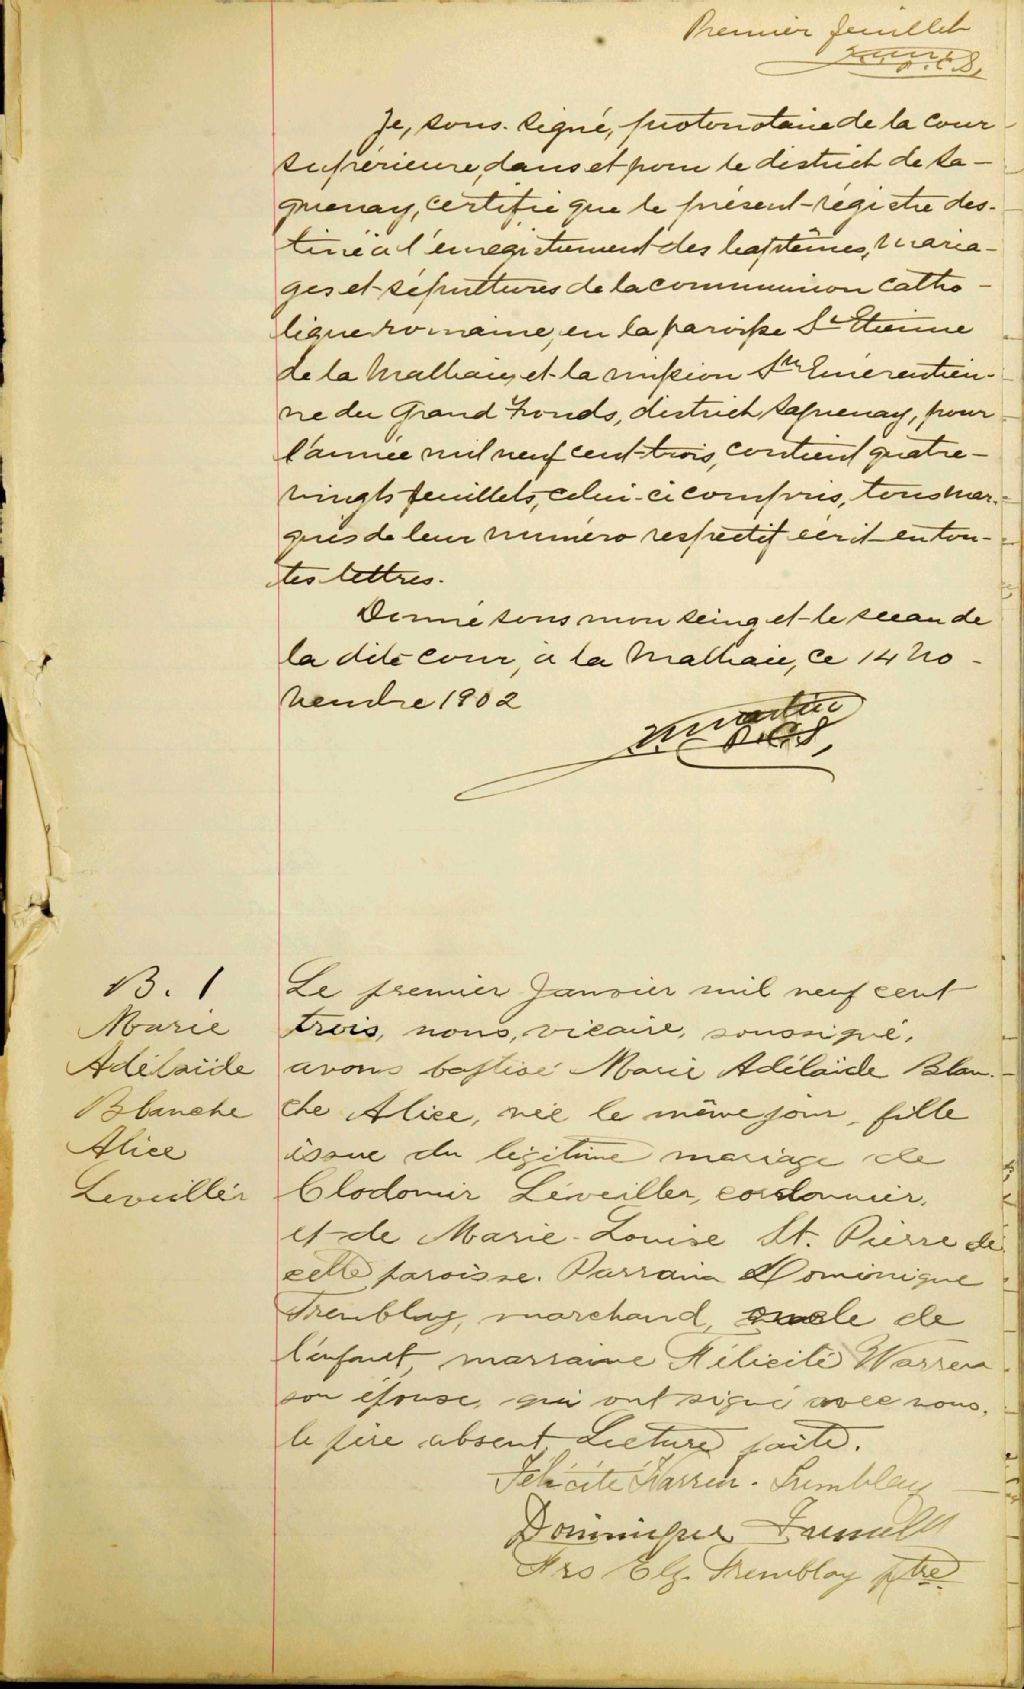 Premier feuillet
P.C.S.
Je, sous-signé, protonotaire de la cour
supérieure, dans et pour le district de Sa-
guenay, certifie que le présent régistre des-
tiné à l'enregistrement des baptêmes, maria-
ges et sépultures de la communion catho-
lique romaine, en la paroisse St Etienne
de la Malbaie, et la mission Ste Emérentien-
ne du Grand Fonds, district Saguenay, pour
l'année mil neuf cent-trois, contient quatre-
vingts feuillets, celui-ci compris, tous mar-
qués de leur numéro respectif écrit en tou-
tes lettres.
Donné sous mon seing et le sceau de
la dite cour, à la Malbaie, ce 14 no-
vembre 1902
Martin
P.C.S,
B. 1
Marie
Adélaïde
Blanche
Alice
Leveillér
Le premier Janvier mil neuf cent
trois, nous, vicaire, soussigné,
avons baptisé Marie Adélaïde Blan-
che Alice, née le même jour, fille
issue du légitime mariage de
Clodomir Léveiller, cordonnier,
et de Marie-Louise St. Pierre de
cette paroisse. Parrain Dominique
Tremblay, marchand, oncle de
l'enfant, marraine Félicité Warren
son épouse, qui ont signé avec nous,
le père absent. Lecture faite.
Félicité Warren-Tremblay
Dominique
Frs Elz. Tremblay ptre